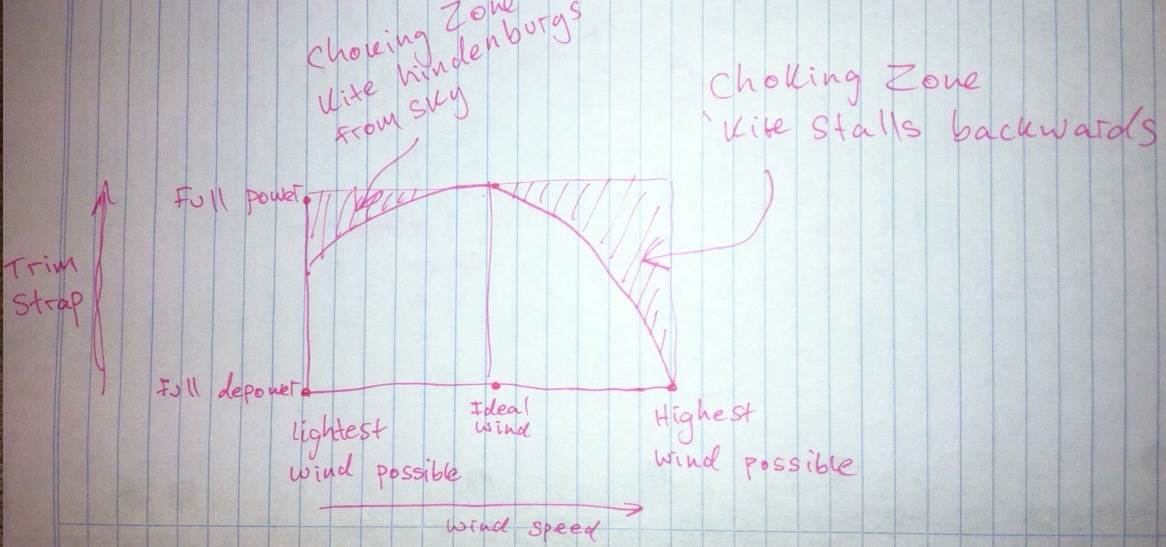 Choking Zone
Kite hindenburgs
from sky
Choking Zone
Kite stalls backwards
Full power
Trim
Strap
Full depower
Lightest
wind possible
Ideal
wind
Highest
wind possible
wind speed